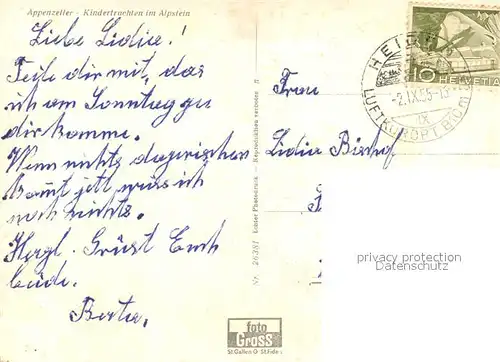 Appenzeller - Kindertrachten im Alpstein
Liebe Lidia!
Teile dir mit, das
ich am Sonntag zu
dir komme.
Wenn nichts dazwischen
kommt jett wüss ich
noch nichts.
Herzl. Grüsst Euch
beide.
Berta.
Frau
Lidia Bischof
HEIDEN
-2.IX.55-13
IX
LUFTKURORT
10 HELVETIA
Nr. 26381 Echter Photodruck - Reproduktion verboten
foto
Gross
St.Gallen O St.Fiden
privacy protection
Datenschutz